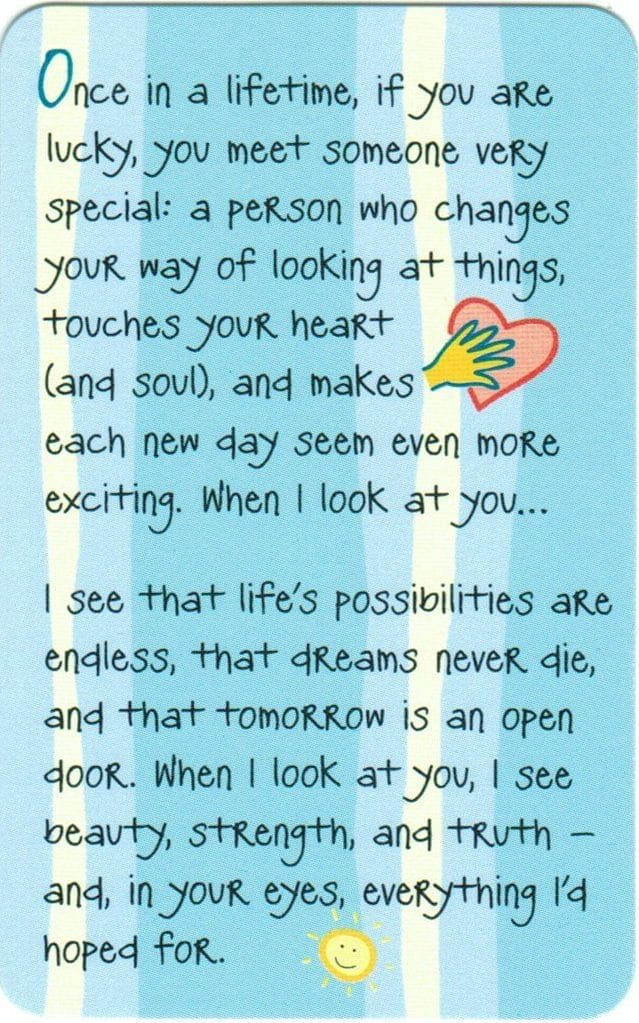 Once in a lifetime, if you are
lucky, you meet someone very
special: a person who changes
your way of looking at things,
touches your heart
(and soul), and makes
each new day seem even more
exciting. When I look at you...
I see that life's possibilities are
endless, that dreams never die,
and that tomorrow is an open
door. When I look at you, I see
beauty, strength, and truth –
and, in your eyes, everything I'd
hoped for.